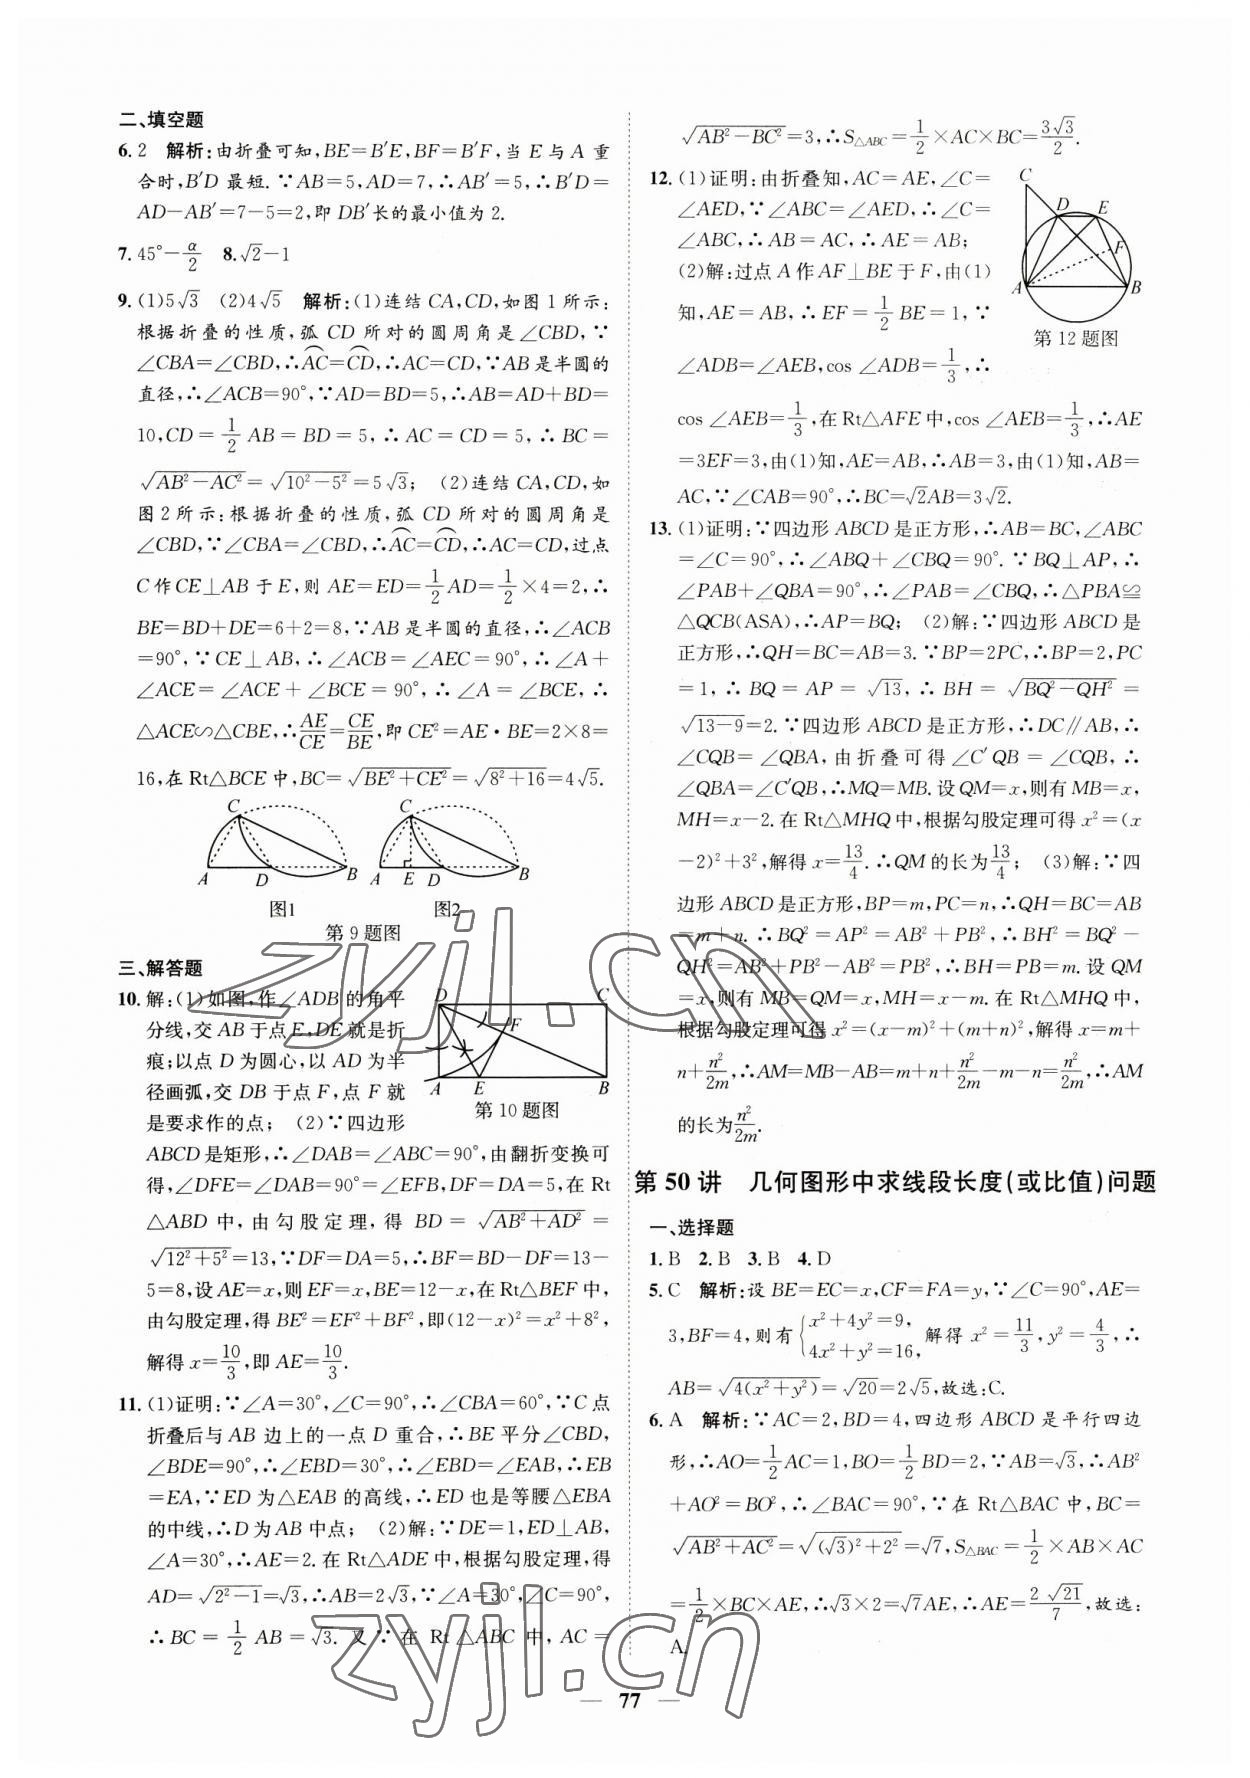 二、填空题
6. 2 解析:由折叠可知,BE=B′E,BF=B′F,当 E 与 A 重
合时,B′D 最短. ∵AB=5,AD=7,∴AB′=5,∴B′D=
AD−AB′=7−5=2,即 DB′长的最小值为 2.
7. 45°−α/2 8. √2−1
9. (1)5√3 (2)4√5 解析:(1)连结 CA,CD,如图 1 所示:
根据折叠的性质,弧 CD 所对的圆周角是∠CBD,∵
∠CBA=∠CBD,∴⌒AC=⌒CD,∴AC=CD,∵AB 是半圆的
直径,∴∠ACB=90°,∵AD=BD=5,∴AB=AD+BD=
10,CD=1/2 AB=BD=5,∴AC=CD=5,∴BC=
√(AB²−AC²)=√(10²−5²)=5√3; (2)连结 CA,CD,如
图 2 所示:根据折叠的性质,弧 CD 所对的圆周角是
∠CBD,∵∠CBA=∠CBD,∴⌒AC=⌒CD,∴AC=CD,过点
C 作 CE⊥AB 于 E,则 AE=ED=1/2AD=1/2×4=2,∴
BE=BD+DE=6+2=8,∵AB 是半圆的直径,∴∠ACB
=90°,∵CE⊥AB,∴∠ACB=∠AEC=90°,∴∠A+
∠ACE=∠ACE+∠BCE=90°,∴∠A=∠BCE,∴
△ACE∽△CBE,∴AE/CE=CE/BE,即 CE²=AE·BE=2×8=
16,在 Rt△BCE 中,BC=√(BE²+CE²)=√(8²+16)=4√5.
C C
A D B A E D B
图1 图2
第 9 题图
三、解答题
10. 解:(1)如图,作∠ADB 的角平
分线,交 AB 于点 E,DE 就是折
痕;以点 D 为圆心,以 AD 为半
径画弧,交 DB 于点 F,点 F 就
是要求作的点; (2)∵四边形
D C
F
A E B
第 10 题图
ABCD 是矩形,∴∠DAB=∠ABC=90°,由翻折变换可
得,∠DFE=∠DAB=90°=∠EFB,DF=DA=5,在 Rt
△ABD 中,由勾股定理,得 BD=√(AB²+AD²)=
√(12²+5²)=13,∵DF=DA=5,∴BF=BD−DF=13−
5=8,设 AE=x,则 EF=x,BE=12−x,在 Rt△BEF 中,
由勾股定理,得 BE²=EF²+BF²,即(12−x)²=x²+8²,
解得 x=10/3,即 AE=10/3.
11. (1)证明:∵∠A=30°,∠C=90°,∴∠CBA=60°,∵C 点
折叠后与 AB 边上的一点 D 重合,∴BE 平分∠CBD,
∠BDE=90°,∴∠EBD=30°,∴∠EBD=∠EAB,∴EB
=EA,∵ED 为△EAB 的高线,∴ED 也是等腰△EBA
的中线,∴D 为 AB 中点; (2)解:∵DE=1,ED⊥AB,
∠A=30°,∴AE=2. 在 Rt△ADE 中,根据勾股定理,得
AD=√(2²−1)=√3,∴AB=2√3,∵∠A=30°,∠C=90°,
∴BC=1/2 AB=√3. 又∵在 Rt△ABC 中,AC=
√(AB²−BC²)=3,∴S△ABC=1/2×AC×BC=3√3/2.
12. (1)证明:由折叠知,AC=AE,∠C=
∠AED,∵∠ABC=∠AED,∴∠C=
∠ABC,∴AB=AC,∴AE=AB;
(2)解:过点 A 作 AF⊥BE 于 F,由(1)
知,AE=AB,∴EF=1/2 BE=1,∵
∠ADB=∠AEB,cos∠ADB=1/3,∴
C
D E
F
A B
第 12 题图
cos∠AEB=1/3,在 Rt△AFE 中,cos∠AEB=1/3,∴AE
=3EF=3,由(1)知,AE=AB,∴AB=3,由(1)知,AB=
AC,∵∠CAB=90°,∴BC=√2AB=3√2.
13. (1)证明:∵四边形 ABCD 是正方形,∴AB=BC,∠ABC
=∠C=90°,∴∠ABQ+∠CBQ=90°. ∵BQ⊥AP,∴
∠PAB+∠QBA=90°,∴∠PAB=∠CBQ,∴△PBA≌
△QCB(ASA),∴AP=BQ; (2)解:∵四边形 ABCD 是
正方形,∴QH=BC=AB=3. ∵BP=2PC,∴BP=2,PC
=1,∴BQ=AP=√13,∴BH=√(BQ²−QH²)=
√(13−9)=2. ∵四边形 ABCD 是正方形,∴DC∥AB,∴
∠CQB=∠QBA,由折叠可得∠C′QB=∠CQB,∴
∠QBA=∠C′QB,∴MQ=MB. 设 QM=x,则有 MB=x,
MH=x−2. 在 Rt△MHQ 中,根据勾股定理可得 x²=(x
−2)²+3²,解得 x=13/4. ∴QM 的长为13/4; (3)解:∵四
边形 ABCD 是正方形,BP=m,PC=n,∴QH=BC=AB
=m+n. ∴BQ²=AP²=AB²+PB²,∴BH²=BQ²−
QH²=AB²+PB²−AB²=PB²,∴BH=PB=m. 设 QM
=x,则有 MB=QM=x,MH=x−m. 在 Rt△MHQ 中,
根据勾股定理可得 x²=(x−m)²+(m+n)²,解得 x=m+
n+n²/2m,∴AM=MB−AB=m+n+n²/2m−m−n=n²/2m,∴AM
的长为n²/2m.
第 50 讲 几何图形中求线段长度(或比值)问题
一、选择题
1. B 2. B 3. B 4. D
5. C 解析:设 BE=EC=x,CF=FA=y,∵∠C=90°,AE=
3,BF=4,则有{x²+4y²=9, 4x²+y²=16, 解得 x²=11/3,y²=4/3,∴
AB=√(4(x²+y²))=√20=2√5,故选:C.
6. A 解析:∵AC=2,BD=4,四边形 ABCD 是平行四边
形,∴AO=1/2AC=1,BO=1/2BD=2,∵AB=√3,∴AB²
+AO²=BO²,∴∠BAC=90°,∵在 Rt△BAC 中,BC=
√(AB²+AC²)=√((√3)²+2²)=√7,S△BAC=1/2×AB×AC
=1/2×BC×AE,∴√3×2=√7AE,∴AE=2√21/7,故选:
A.
77
zyjl.cn
zyjl.cn